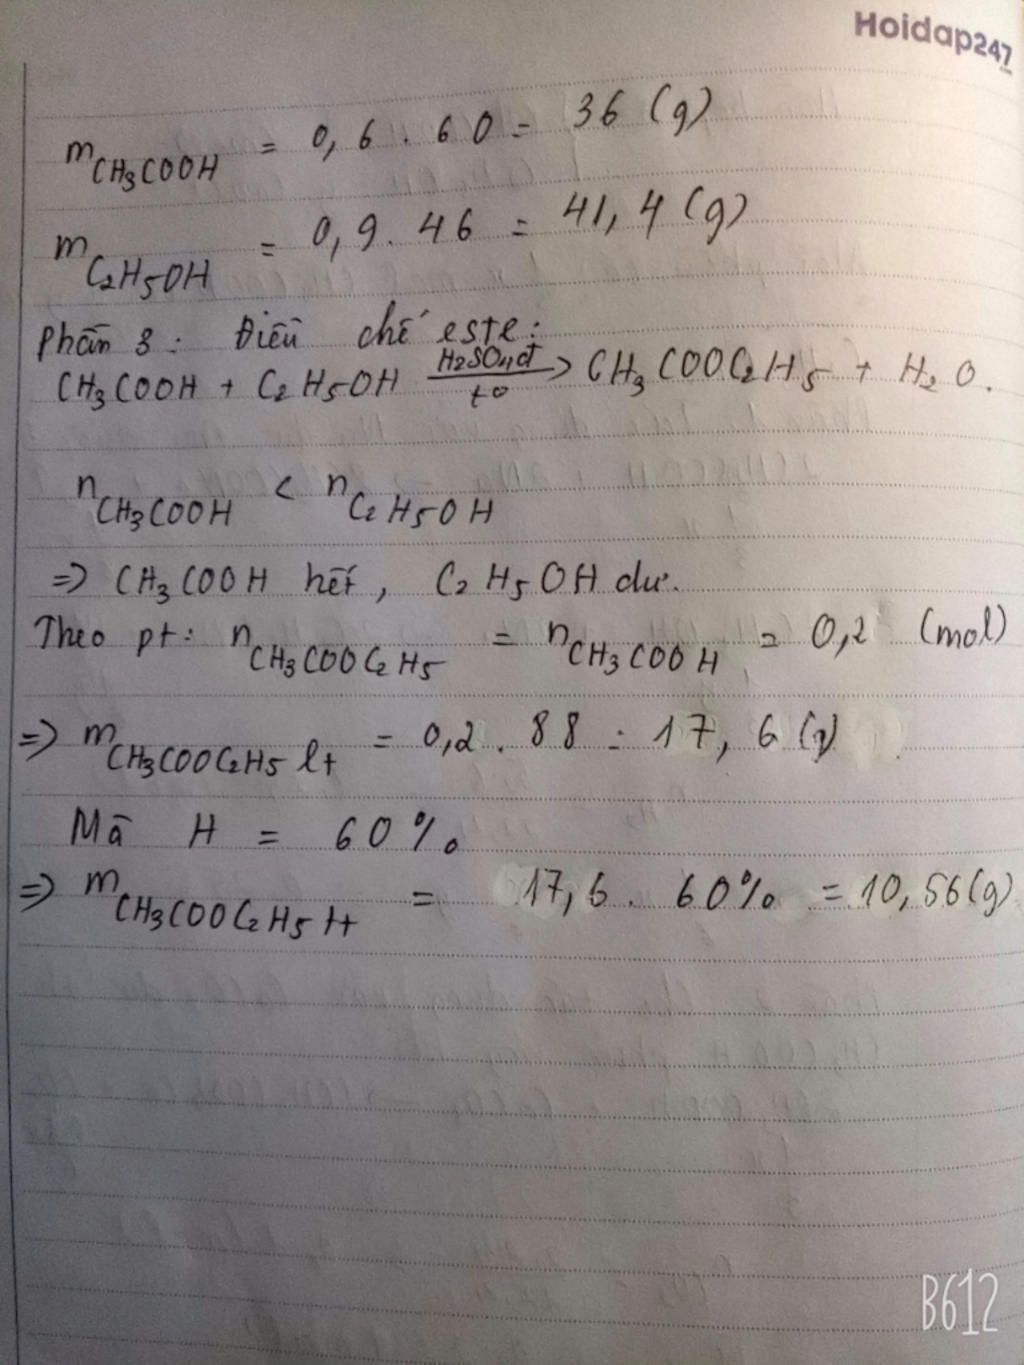 Hoidap247
mCH3COOH = 0,6 . 60 = 36 (g)
mC2H5OH = 0,9 . 46 = 41,4 (g)
Phần 3 : Điều chế este :
CH3COOH + C2H5OH H2SO4đ to > CH3COOC2H5 + H2O.
nCH3COOH < nC2H5OH
=> CH3COOH hết , C2H5OH dư.
Theo pt : nCH3COOC2H5 = nCH3COOH = 0,2 (mol)
=> mCH3COOC2H5 lt = 0,2 . 88 = 17,6 (g)
Mà H = 60%
=> mCH3COOC2H5 tt = 17,6 . 60% = 10,56 (g)
B612